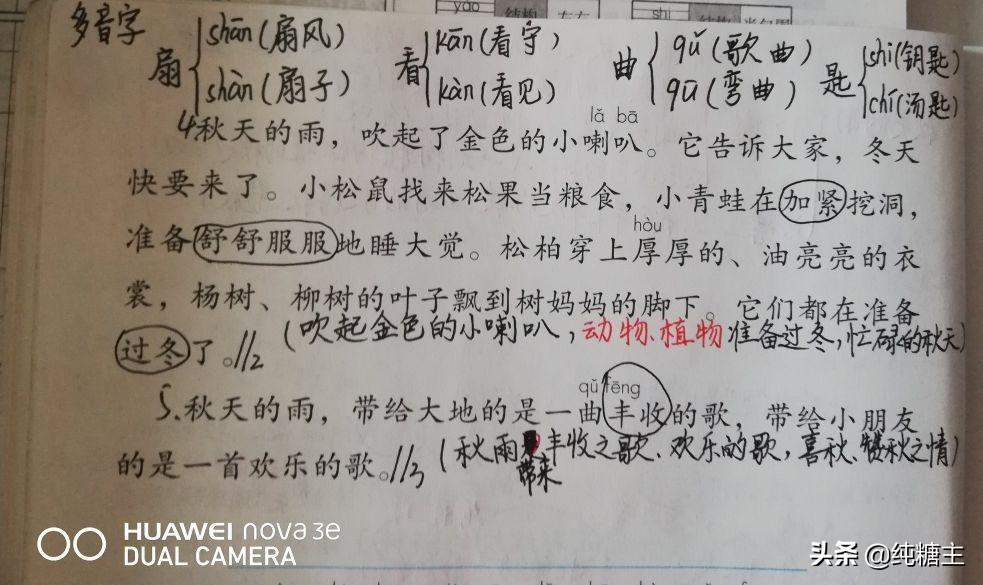 yào 结构 左右 shi 结构 半包围
多音字
扇 shān(扇风) 看 kān(看守) 曲 qǔ(歌曲) 匙 shi(钥匙)
shàn(扇子) kàn(看见) qū(弯曲) chí(汤匙)
lǎ bā
4秋天的雨，吹起了金色的小喇叭。它告诉大家，冬天
快要来了。小松鼠找来松果当粮食，小青蛙在加紧挖洞，
准备舒舒服服地睡大觉。松柏穿上厚厚的、油亮亮的衣
hòu
裳，杨树、柳树的叶子飘到树妈妈的脚下。它们都在准备
过冬了。//2 (吹起金色的小喇叭，动物、植物准备过冬，忙碌的秋天)
qǔ fēng
5.秋天的雨，带给大地的是一曲丰收的歌，带给小朋友
的是一首欢乐的歌。//3 (秋雨带来丰收之歌、欢乐的歌，喜秋、赞秋之情)
HUAWEI nova 3e
DUAL CAMERA
头条 @纯糖主